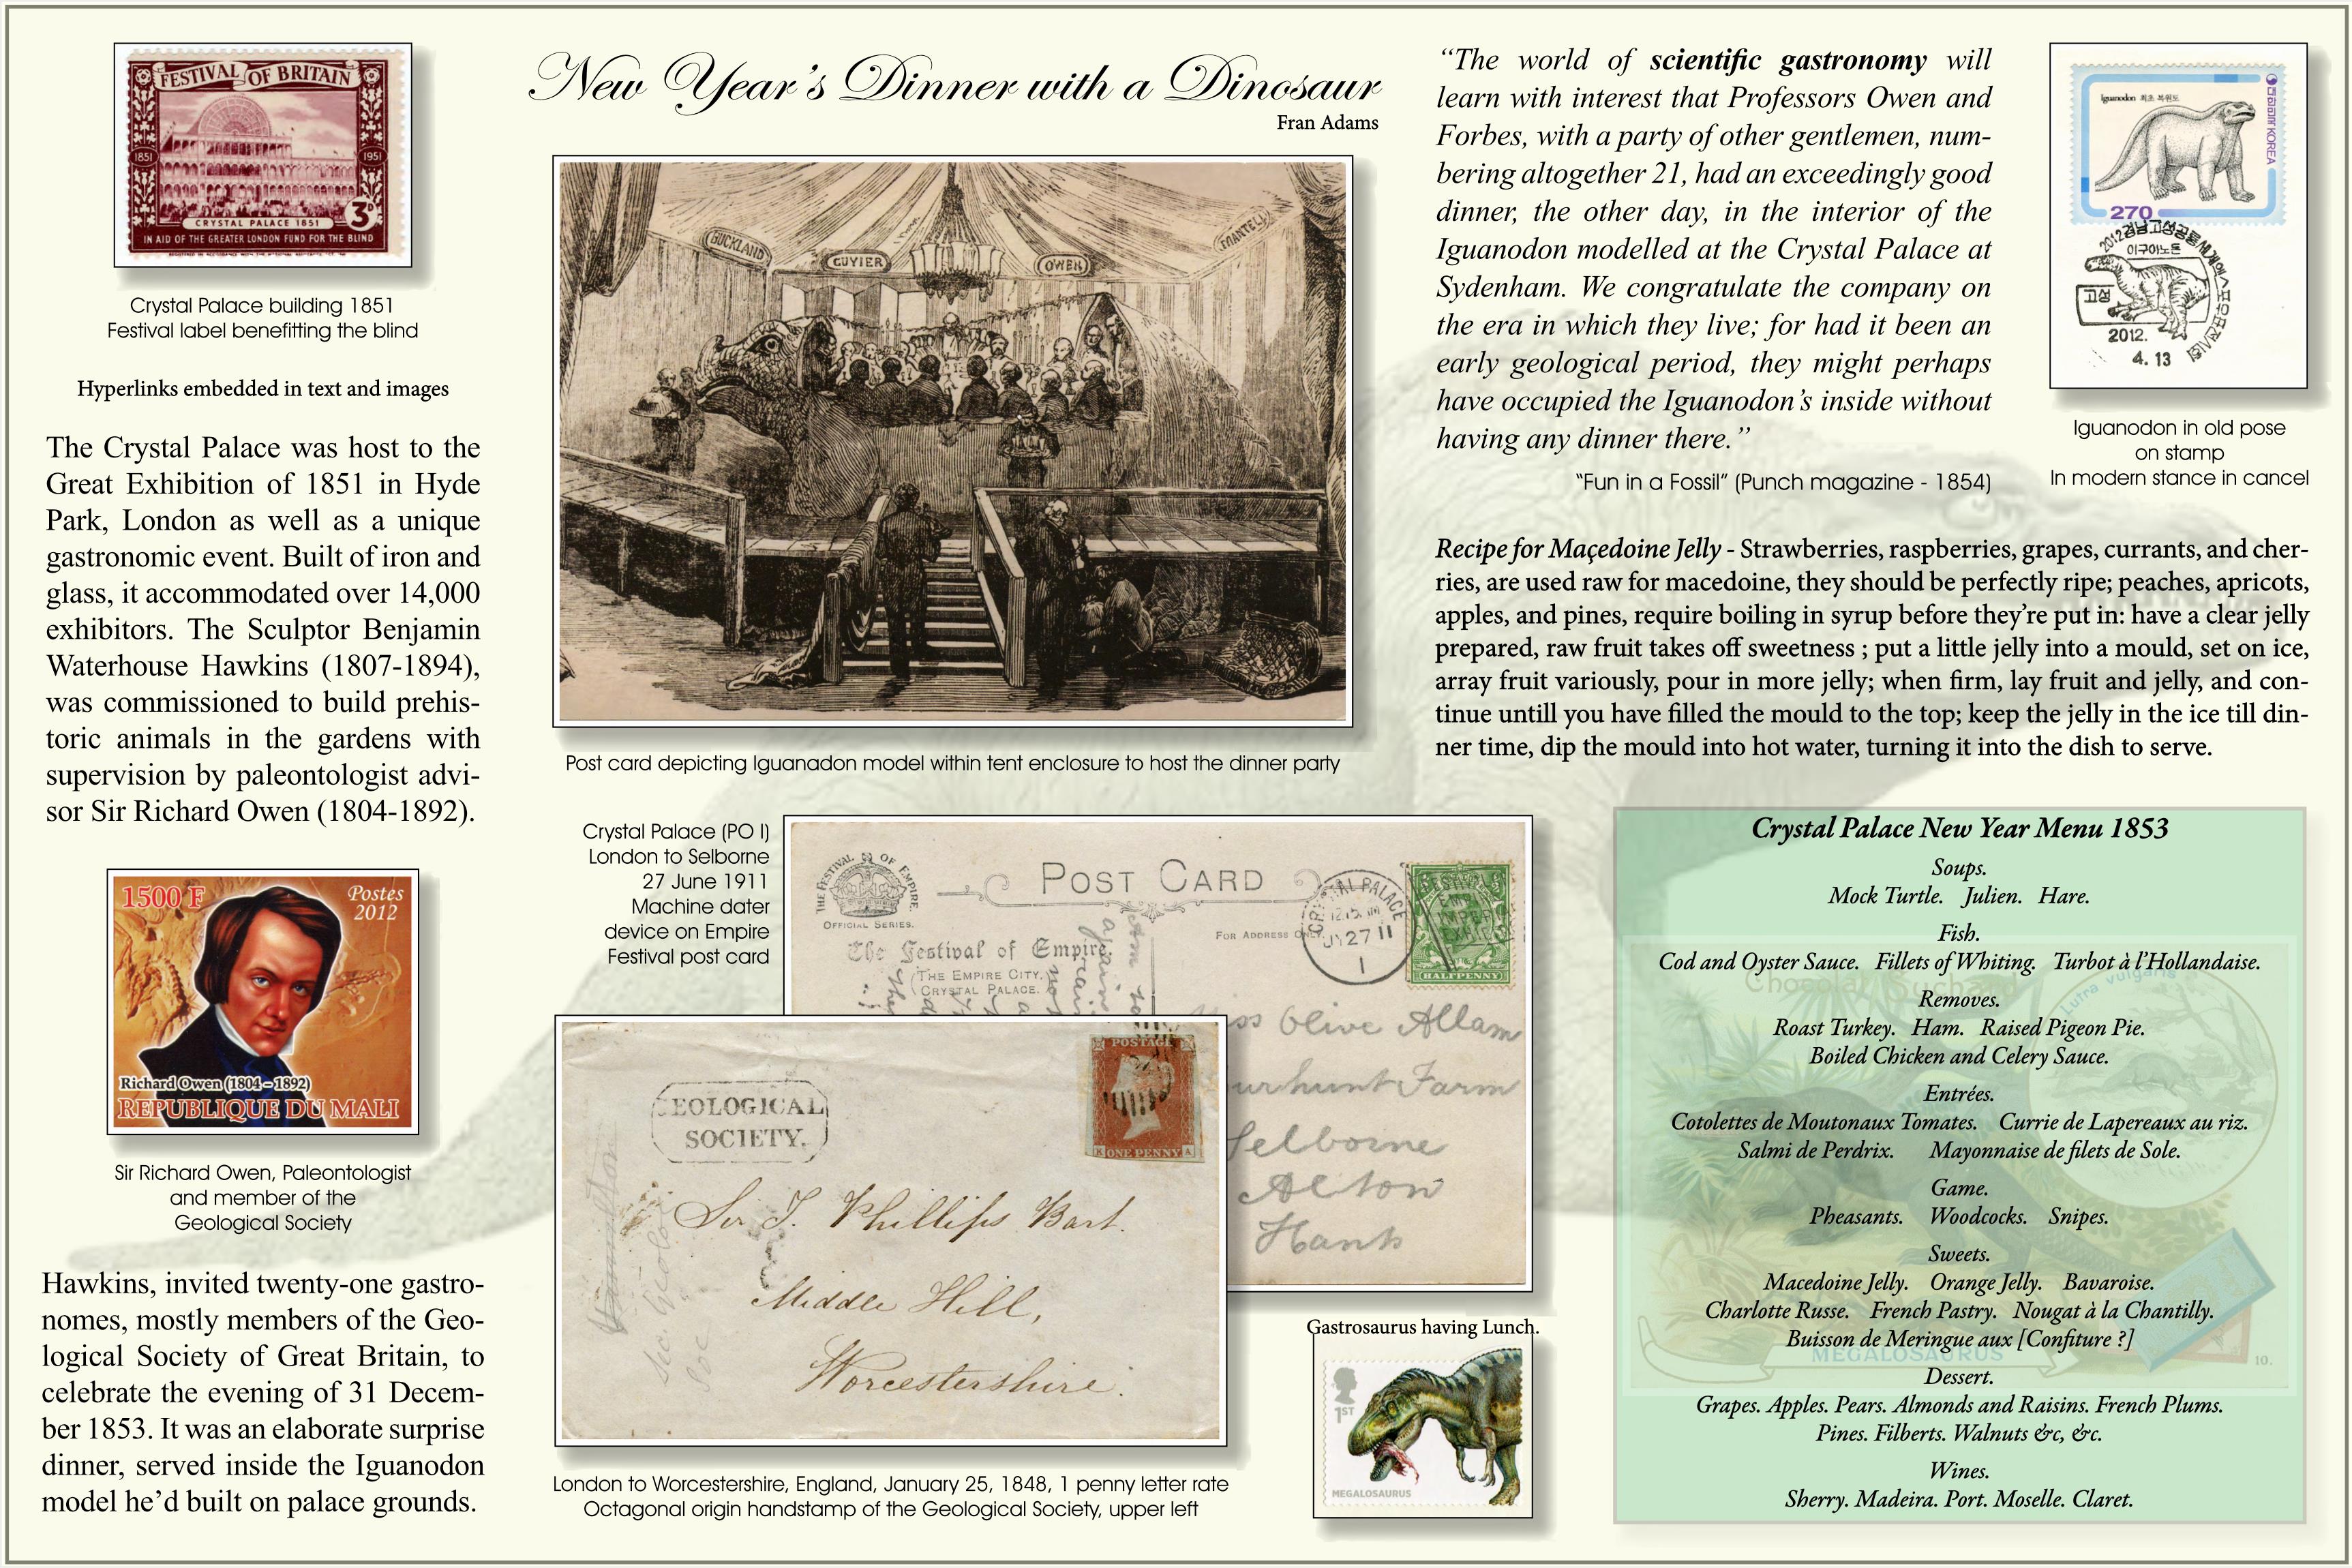 FESTIVAL OF BRITAIN
1851
1951
3D
CRYSTAL PALACE 1851
IN AID OF THE GREATER LONDON FUND FOR THE BLIND
Crystal Palace building 1851
Festival label benefitting the blind
Hyperlinks embedded in text and images
The Crystal Palace was host to the
Great Exhibition of 1851 in Hyde
Park, London as well as a unique
gastronomic event. Built of iron and
glass, it accommodated over 14,000
exhibitors. The Sculptor Benjamin
Waterhouse Hawkins (1807-1894),
was commissioned to build prehis-
toric animals in the gardens with
supervision by paleontologist advi-
sor Sir Richard Owen (1804-1892).
1500 F
Postes
2012
Richard Owen (1804-1892)
REPUBLIQUE DU MALI
Sir Richard Owen, Paleontologist
and member of the
Geological Society
Hawkins, invited twenty-one gastro-
nomes, mostly members of the Geo-
logical Society of Great Britain, to
celebrate the evening of 31 Decem-
ber 1853. It was an elaborate surprise
dinner, served inside the Iguanodon
model he'd built on palace grounds.
New Year's Dinner with a Dinosaur
Fran Adams
BUCKLAND
CUVIER
OWEN
MANTELL
Post card depicting Iguanadon model within tent enclosure to host the dinner party
Crystal Palace (PO I)
London to Selborne
27 June 1911
Machine dater
device on Empire
Festival post card
THE FESTIVAL OF EMPIRE.
OFFICIAL SERIES.
POST CARD
FOR ADDRESS ONLY.
The Festival of Empire,
(THE EMPIRE CITY.)
CRYSTAL PALACE.
CRYSTAL PALACE
JY 27 11
1
HALFPENNY
Olive Allam
Farm
Selborne
Alton
Hants
POSTAGE
K ONE PENNY A
GEOLOGICAL
SOCIETY.
Sir T. Phillips Bart.
Middle Hill,
Worcestershire.
London to Worcestershire, England, January 25, 1848, 1 penny letter rate
Octagonal origin handstamp of the Geological Society, upper left
Gastrosaurus having Lunch.
1ST
MEGALOSAURUS
“The world of scientific gastronomy will
learn with interest that Professors Owen and
Forbes, with a party of other gentlemen, num-
bering altogether 21, had an exceedingly good
dinner, the other day, in the interior of the
Iguanodon modelled at the Crystal Palace at
Sydenham. We congratulate the company on
the era in which they live; for had it been an
early geological period, they might perhaps
have occupied the Iguanodon's inside without
having any dinner there.”
“Fun in a Fossil” (Punch magazine - 1854)
Iguanodon 최초 복원도
대한민국 KOREA
270
이구아노돈
고성
2012.
4. 13
Iguanodon in old pose
on stamp
In modern stance in cancel
Recipe for Maçedoine Jelly - Strawberries, raspberries, grapes, currants, and cher-
ries, are used raw for macedoine, they should be perfectly ripe; peaches, apricots,
apples, and pines, require boiling in syrup before they're put in: have a clear jelly
prepared, raw fruit takes off sweetness ; put a little jelly into a mould, set on ice,
array fruit variously, pour in more jelly; when firm, lay fruit and jelly, and con-
tinue untill you have filled the mould to the top; keep the jelly in the ice till din-
ner time, dip the mould into hot water, turning it into the dish to serve.
Crystal Palace New Year Menu 1853
Soups.
Mock Turtle. Julien. Hare.
Fish.
Cod and Oyster Sauce. Fillets of Whiting. Turbot à l'Hollandaise.
Removes.
Roast Turkey. Ham. Raised Pigeon Pie.
Boiled Chicken and Celery Sauce.
Entrées.
Cotolettes de Moutonaux Tomates. Currie de Lapereaux au riz.
Salmi de Perdrix. Mayonnaise de filets de Sole.
Game.
Pheasants. Woodcocks. Snipes.
Sweets.
Macedoine Jelly. Orange Jelly. Bavaroise.
Charlotte Russe. French Pastry. Nougat à la Chantilly.
Buisson de Meringue aux [Confiture ?]
Dessert.
Grapes. Apples. Pears. Almonds and Raisins. French Plums.
Pines. Filberts. Walnuts &c, &c.
Wines.
Sherry. Madeira. Port. Moselle. Claret.
Chocolat Suchard
Lutra vulgaris
MEGALOSAURUS
10.